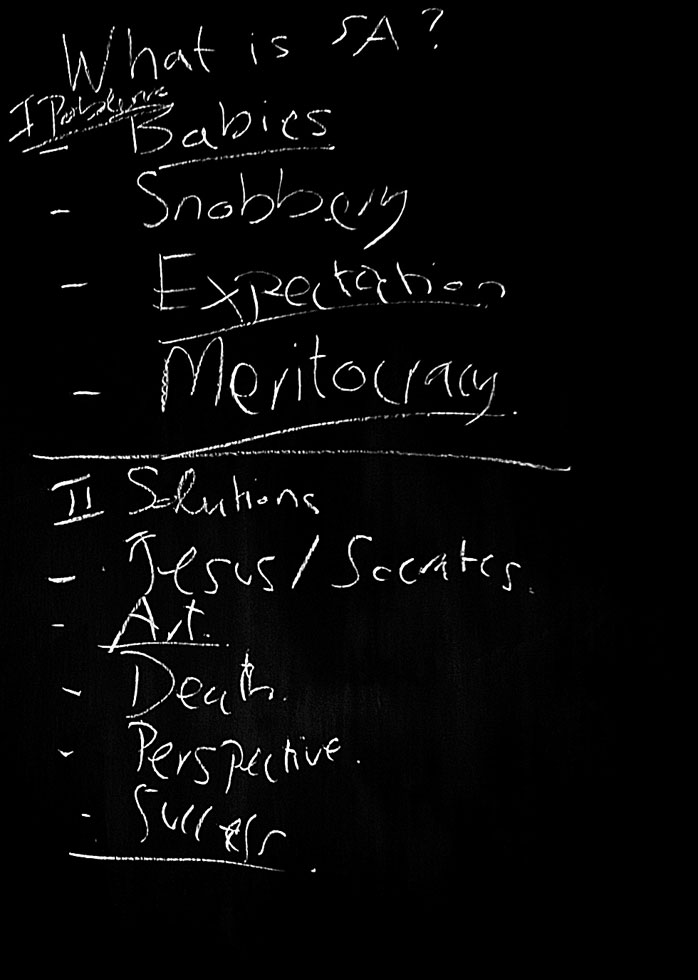 What is SA?
I Problems
- Babies
- Snobbery
- Expectation
- Meritocracy.
II Solutions
- Jesus / Socrates.
- Art.
- Death.
- Perspective.
- Success.